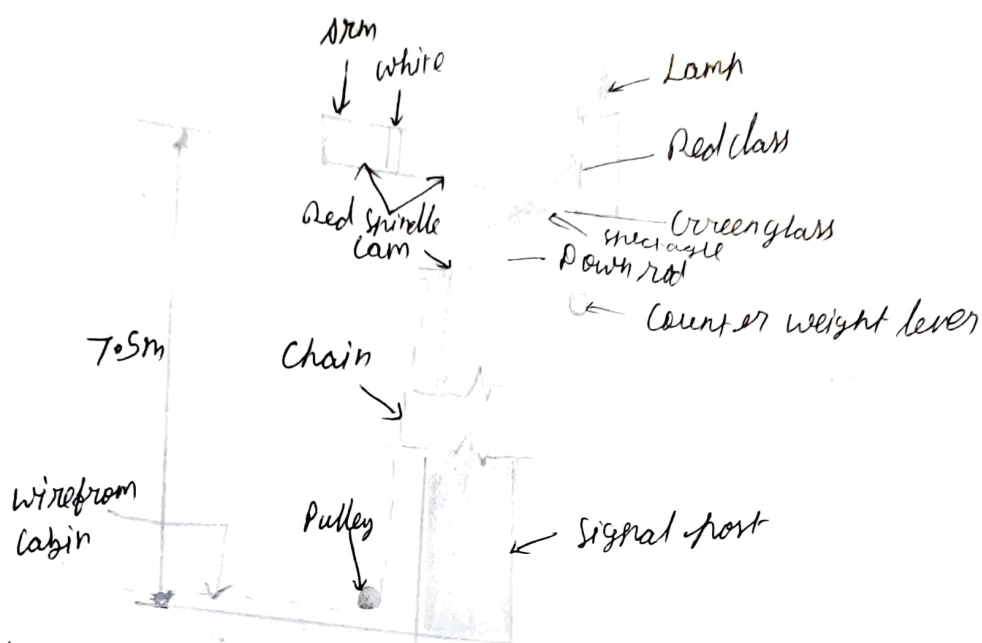 Arm
white
Lamp
Red class
Red spindle
Cam
Green glass
spectagle
Down rod
Counter weight lever
7.5m
Chain
wirefrom
Cabin
Pulley
Signal post